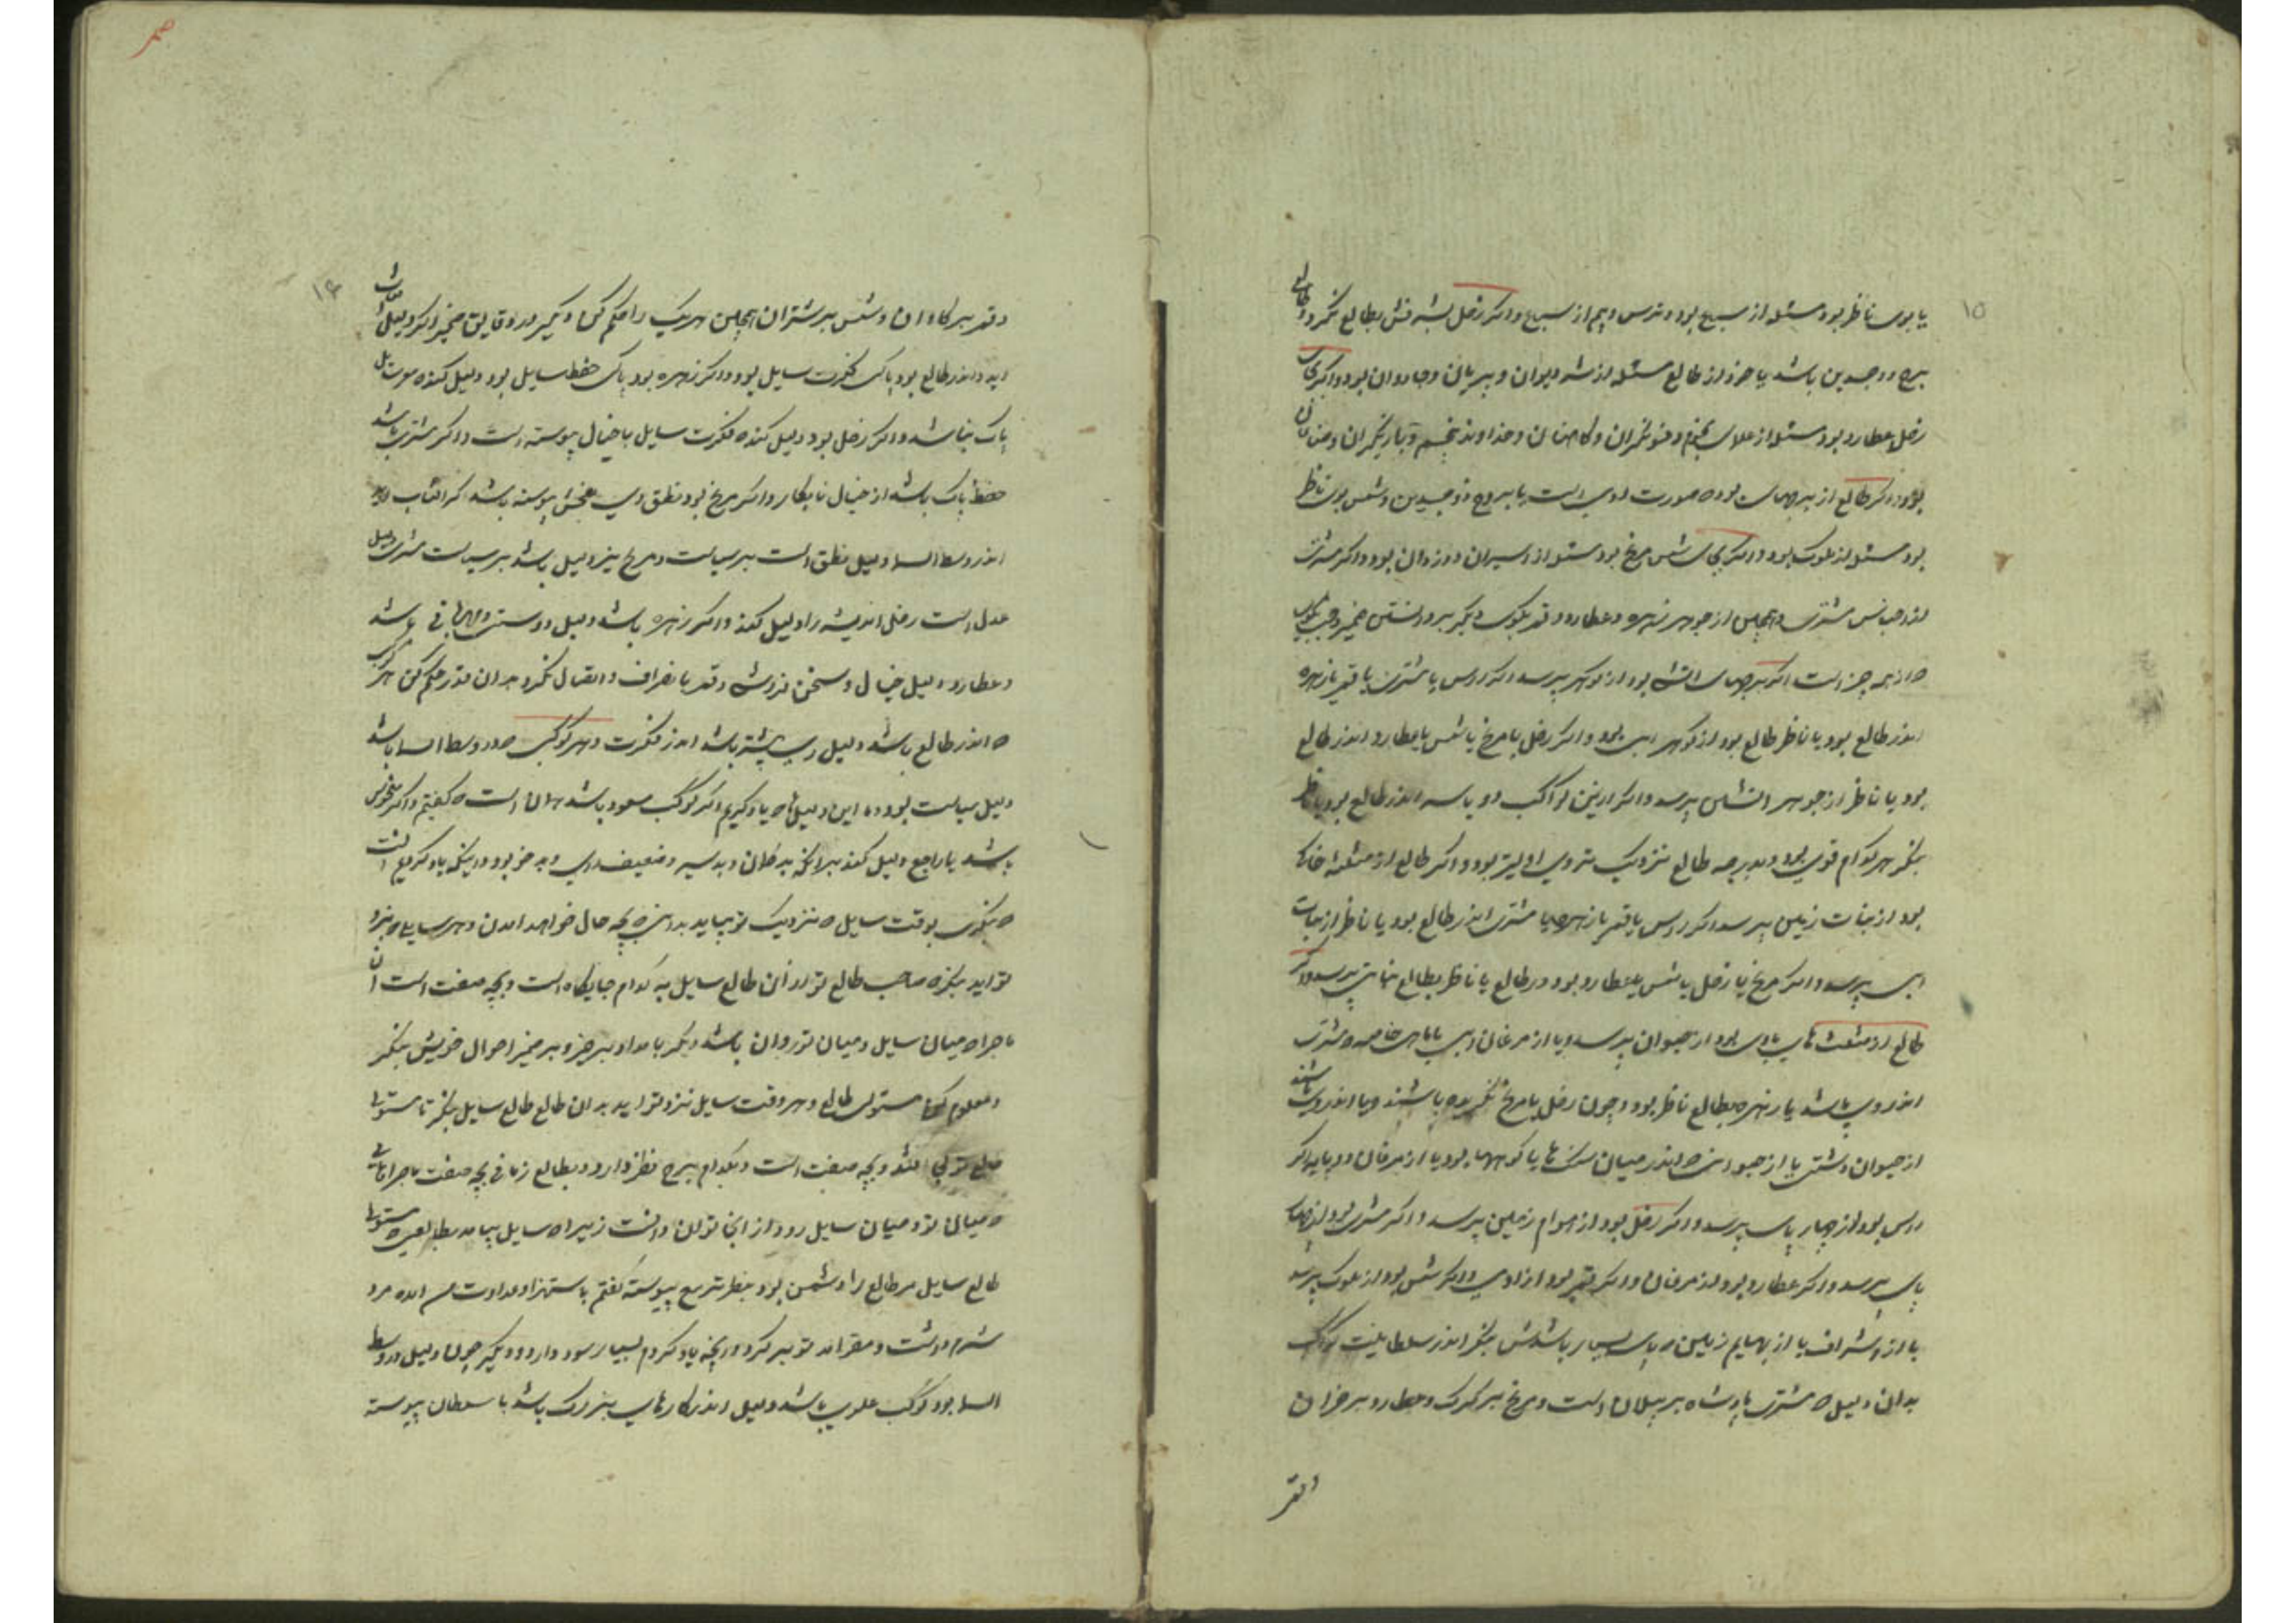 ۱۵
یا بوی ناظر بود مسئله از سباع بود و ترس و بیم از سباع و اگر زحل بشبه فش بطالع نگرد و طالع
برج ذوجسدین باشد یا جز از طالع مسئله از شه دیوان و پریان و جادوان بود و اگر بجای
زحل عطارد بود مسئله از علمای نجوم و فنونگران و کاهنان و خداوند تنجیم و بازیگران و
بود و اگر طالع از برجهای بود که صورت اوی است یا بروج ذوجسدین و شمس بوی ناظر
بود مسئله از ملوک بود و اگر بجای شمس مریخ بود مسئله از اسیران و دزدان بود و اگر مشتری
از جنس مشتری و همچنین از جوهر زهره و عطارد و قمر بگوی دیگر بر دانستن ضمیر
که از چه چیز است اگر برجهای آتشی بود از گوهر پرسد اگر راس یا مشتری یا قمر یا زهره
اندر طالع بود یا ناظر طالع بود از گوهر آبی بود و اگر زحل یا مریخ یا شمس یا عطارد اندر طالع
بود یا ناظر از جوهر آتشین پرسد و اگر ازین کواکب دو یا سه اندر طالع بود یا ناظر
بنگر هر کدام قوی بود و بدرجه طالع نزدیک تر وی اولیتر بود و اگر طالع از مثلثه خاکی
بود از نبات زمین پرسد اگر راس یا قمر یا زهره یا مشتری اندر طالع بود یا ناظر از نبات
آبی پرسد و اگر مریخ یا زحل یا شمس یا عطارد بود در طالع یا ناظر بطالع نباتی پرسد و اگر
طالع از مثلثه های بادی بود از حیوان پرسد و یا از مرغان آبی یا ماهی خاصه که مشتری
اندر وی باشد یا زهره بطالع ناظر بود و چون زحل یا مریخ نگرنده باشند و یا اندر وی باشند
از حیوان دشتی یا از حیوانی که اندر میان سنگ ها یا کوهها بود یا از مرغان و اگر
راس بود از چهار پای پرسد و اگر زحل بود از هوام زمین پرسد و اگر مشتری بود از چهار
پای پرسد و اگر عطارد بود از مرغان و اگر قمر بود از آدمی و اگر شمس بود از ملوک پرسد
یا از اشراف یا از بهایم زمین و پای بسیار باشدش بنگر اندر سلطانیت کواکب
بدان دلیل که مشتری پادشاه بر پیلان است و مریخ بر گرگ و عطارد بر خران
القمر
۱۶
و قمر بر گاوان و شمس بر شتران همچنین هر یک را حکم کن و دیگر در دقایق ضمیر اگر دلیل
اید و اندر طالع بود پاکی فکرت سایل بود و اگر زهره بود پاکی حفظ سایل بود و دلیل کند که سرت
پاک باشد و اگر زحل بود دلیل کند که فکرت سایل با خیال پیوسته است و اگر مشتری باشد
حفظ پاک باشد از خیال نابکار و اگر مریخ بود نطق وی بخش پیوسته باشد اگر آفتاب
اندر وسط السما دلیل نطق است بر سیاست و مریخ نیز دلیل باشد بر سیاست مشتری دلیل
عدل است زحل اندیشه را دلیل کند و اگر زهره باشد دلیل دوستی و مهربانی باشد
و عطارد دلیل خیال و سخن فروشی و قمر بانصراف و اتصال نگرد بدان قدر حکم کن هر کوکب
که اندر طالع باشد دلیل وی پیشتر باشد اندر فکرت و هر کوکب که در وسط السما باشد
دلیل سیاست بود و ما این دلیل ها که یاد کردیم اگر کوکب مسعود باشد همان است که گفتیم و اگر منحوس
باشد یا راجع دلیل کند برانکه بد گمان و بد سیر و ضعیف رای و بد خو بود و اینکه یاد کردیم آنست
که بنگری بوقت سایل که نزدیک تو بیاید بدانی که بچه حال خواهد آمدن و هر سایلی که نزد
تو آید بنگر که صاحب طالع تو از آن طالع سایل به کدام جایگاه است و بچه صفت است آن
ماجرا که میان سایل و میان تو روان باشد دیگر بامداد برخیز و بر ضمیر احوال خویش بنگر
و معلوم کن مستولی طالع و هر وقت سایل نزد تو آید بدان طالع طالع سایل بنگر تا مستولی
طالع تو کجا افتد و بچه صفت است و بکدام برج نظر دارد و بطالع زمانی بچه صفت ماجرا
که میان تو و میان سایل رود از آنجا توان دانست زیرا که سایل بیامد بطالعی که مستولی
طالع سایل مر طالع را دشمن بود بنظر تربیع پیوسته گفتم باستهزا و عداوت آمده مرد
شرم داشت و مقر آمد توبه کرد و آنچه یاد کردم بسیار سود دارد و دیگر چون دلیل در وسط
السما بود کوکب علوی باشد دلیل اندر کارهای بزرگ باشد با سلطان پیوسته